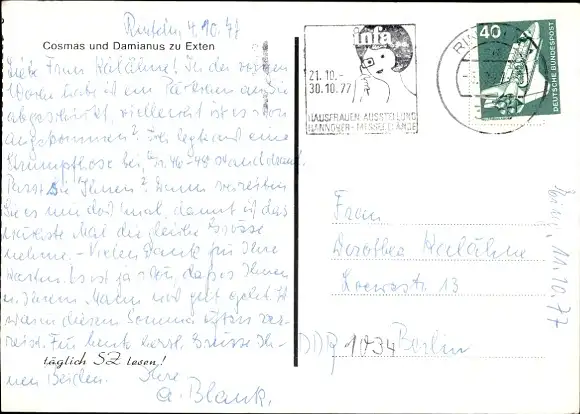 Rinteln, 4.10.77
Cosmas und Damianus zu Exten
Liebe Frau Kalähne! In der vorigen
Woche habe ich ein Päckchen an Sie
abgeschickt, vielleicht ist es schon
angekommen? Ich legte auch eine
Strumpfhose bei, Gr. 46-48 stand drauf.
Passt sie Ihnen? Dann schreiben
Sie es mir doch mal, damit ich das
nächste Mal die gleiche Grösse
nehme. - Vielen Dank für Ihre
Karten. Es ist ja schön, dass es Ihnen
u. Ihrem Mann und gut geht. Wir
waren diesen Sommer öfters ver-
reist. Für heute herzl. Grüsse Ih-
täglich SZ lesen!
nen Beiden. Ihre
A. Blank.
infa
21.10.-
30.10.77
HAUSFRAUEN-AUSSTELLUNG
HANNOVER-MESSEGELÄNDE
RIN
40
DEUTSCHE BUNDESPOST
Frau
Dorothea Kalähne
Loewestr. 13
DDR 1034 Berlin
11.10.77